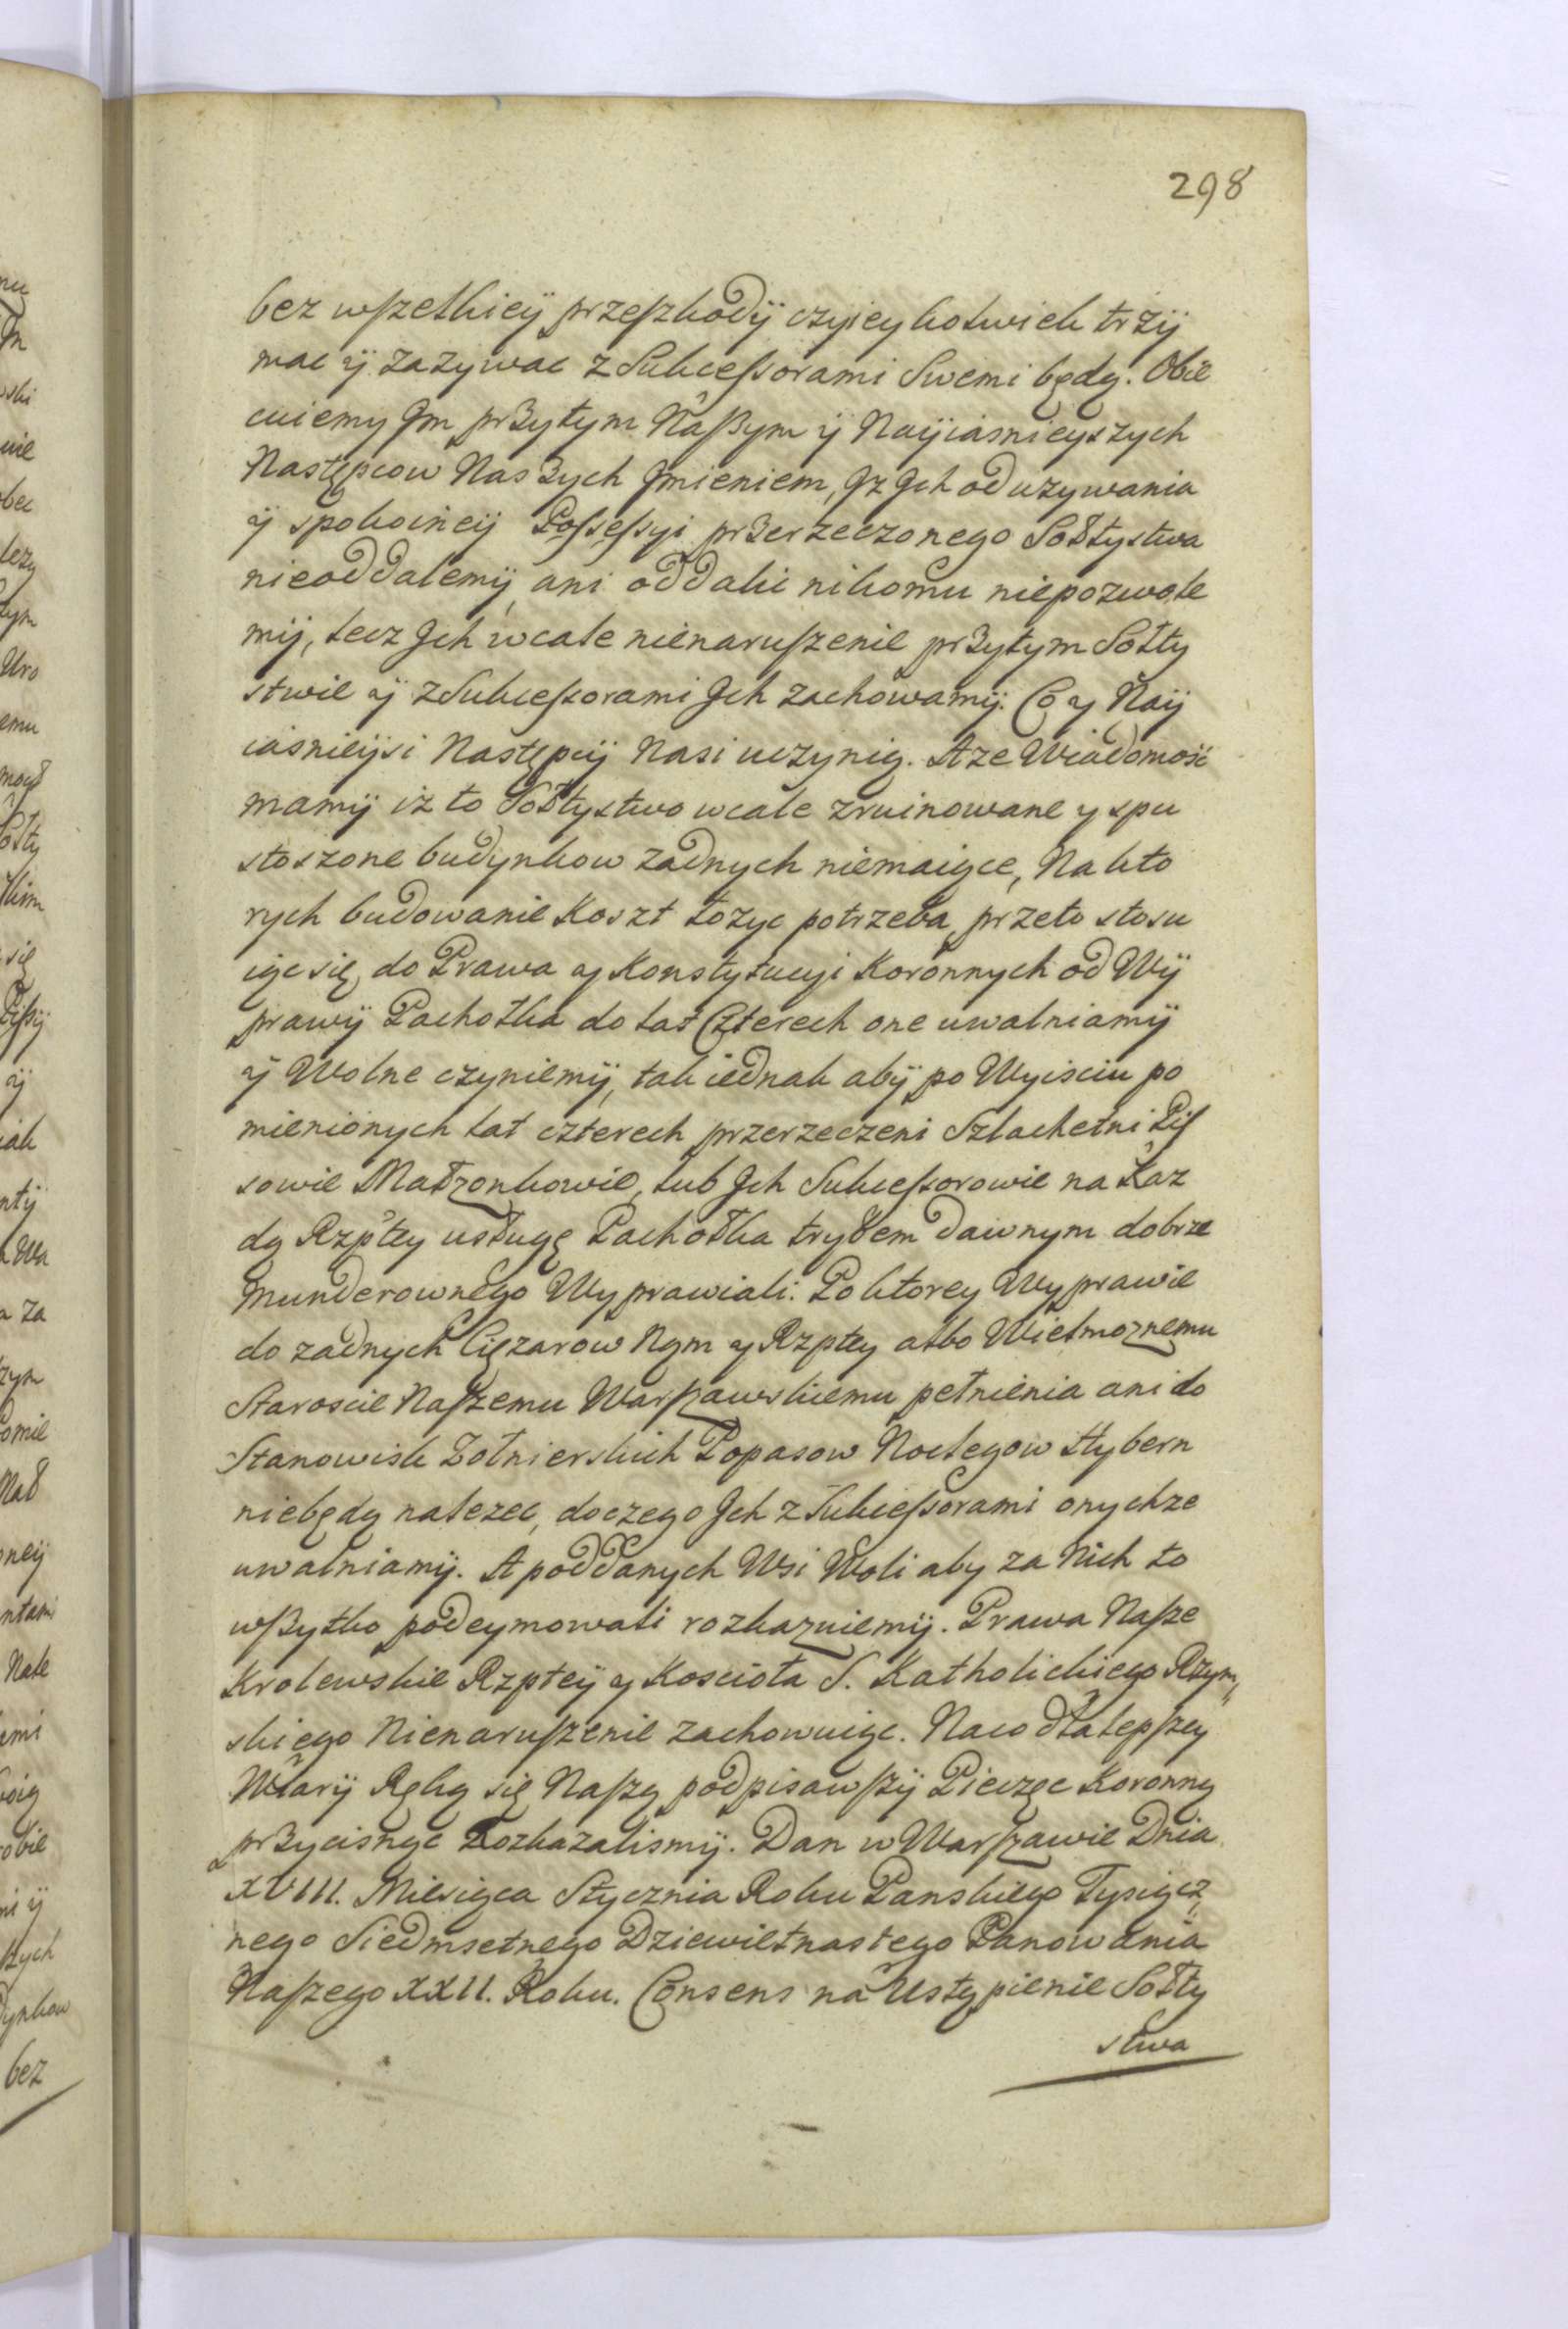 298
bez wszelkieÿ przeszkodÿ czyieykolwiek trzÿ
mac ÿ zazywac z Sukcessorami Swemi będą. Obie
cuiemy Jm przytym Naszym ÿ Nayiasnieyszych
Następcow Naszych Jmieniem, Jz Jch od uzywania
ÿ spokoineÿ Possessyi przerzeczonego Sołtystwa
nieoddalemÿ, ani oddalic nikomu niepozwole
mÿ, lecz Jch wcale nienaruszenie przytym Sołty
stwie ÿ z Sukcessorami Jch zachowamÿ. Co y Naÿ
iasnieÿsi Następcÿ Nasi uczynią. A ze Wiadomość
mamÿ iż to Sołtystwo wcale zruinowane y spu
stoszone budynkow zadnych niemaiące, Na kto
rych budowanie Koszt łozyc potrzeba, przeto stosu
iąc się do Prawa y Konstytucyi Koronnych od Wÿ
prawÿ Pachołka do lat Czterech one uwalniamÿ
ÿ Wolne czyniemÿ, tak iednak abÿ po Wyisciu po
mienionych lat czterech przerzeczeni Szlachetni Pis
sowie Małzonkowie, lub Jch Sukcessorowie na Kaz
dą Rzptey usługę Pachołka trybem dawnym dobrze
munderownego Wyprawiali. Po ktorey Wyprawie
do zadnych Cięzarow Nym y Rzptey albo Wielmoznemu
Staroscie Naszemu Warszawskiemu pełnienia ani do
Stanowisk Zołnierskich Popasow Noclegow Hybern
niebędą nalezec, doczego Jch z Sukcessorami onychze
uwalniamÿ. A poddanych Wsi Woli aby za Nich to
wszytko podeymowali rozkazuiemÿ. Prawa Nasze
Krolewskie Rzpteÿ y Kosciola S. Katholickiego Rzym„
skiego Nienaruszenie zachowuiąc. Naco dla lepszey
Wiarÿ Ręką się Naszą podpisawszÿ Pieczęc Koronną
przycisnąc Rozkazalismÿ. Dan w Warszawie Dnia
XVIII. Miesiąca Stycznia Roku Panskiego Tysiącz„
nego Siedmsetnego Dziewietnastego Panowania
Naszego XXII. Roku. Consens na Ustąpienie Sołty
stwa